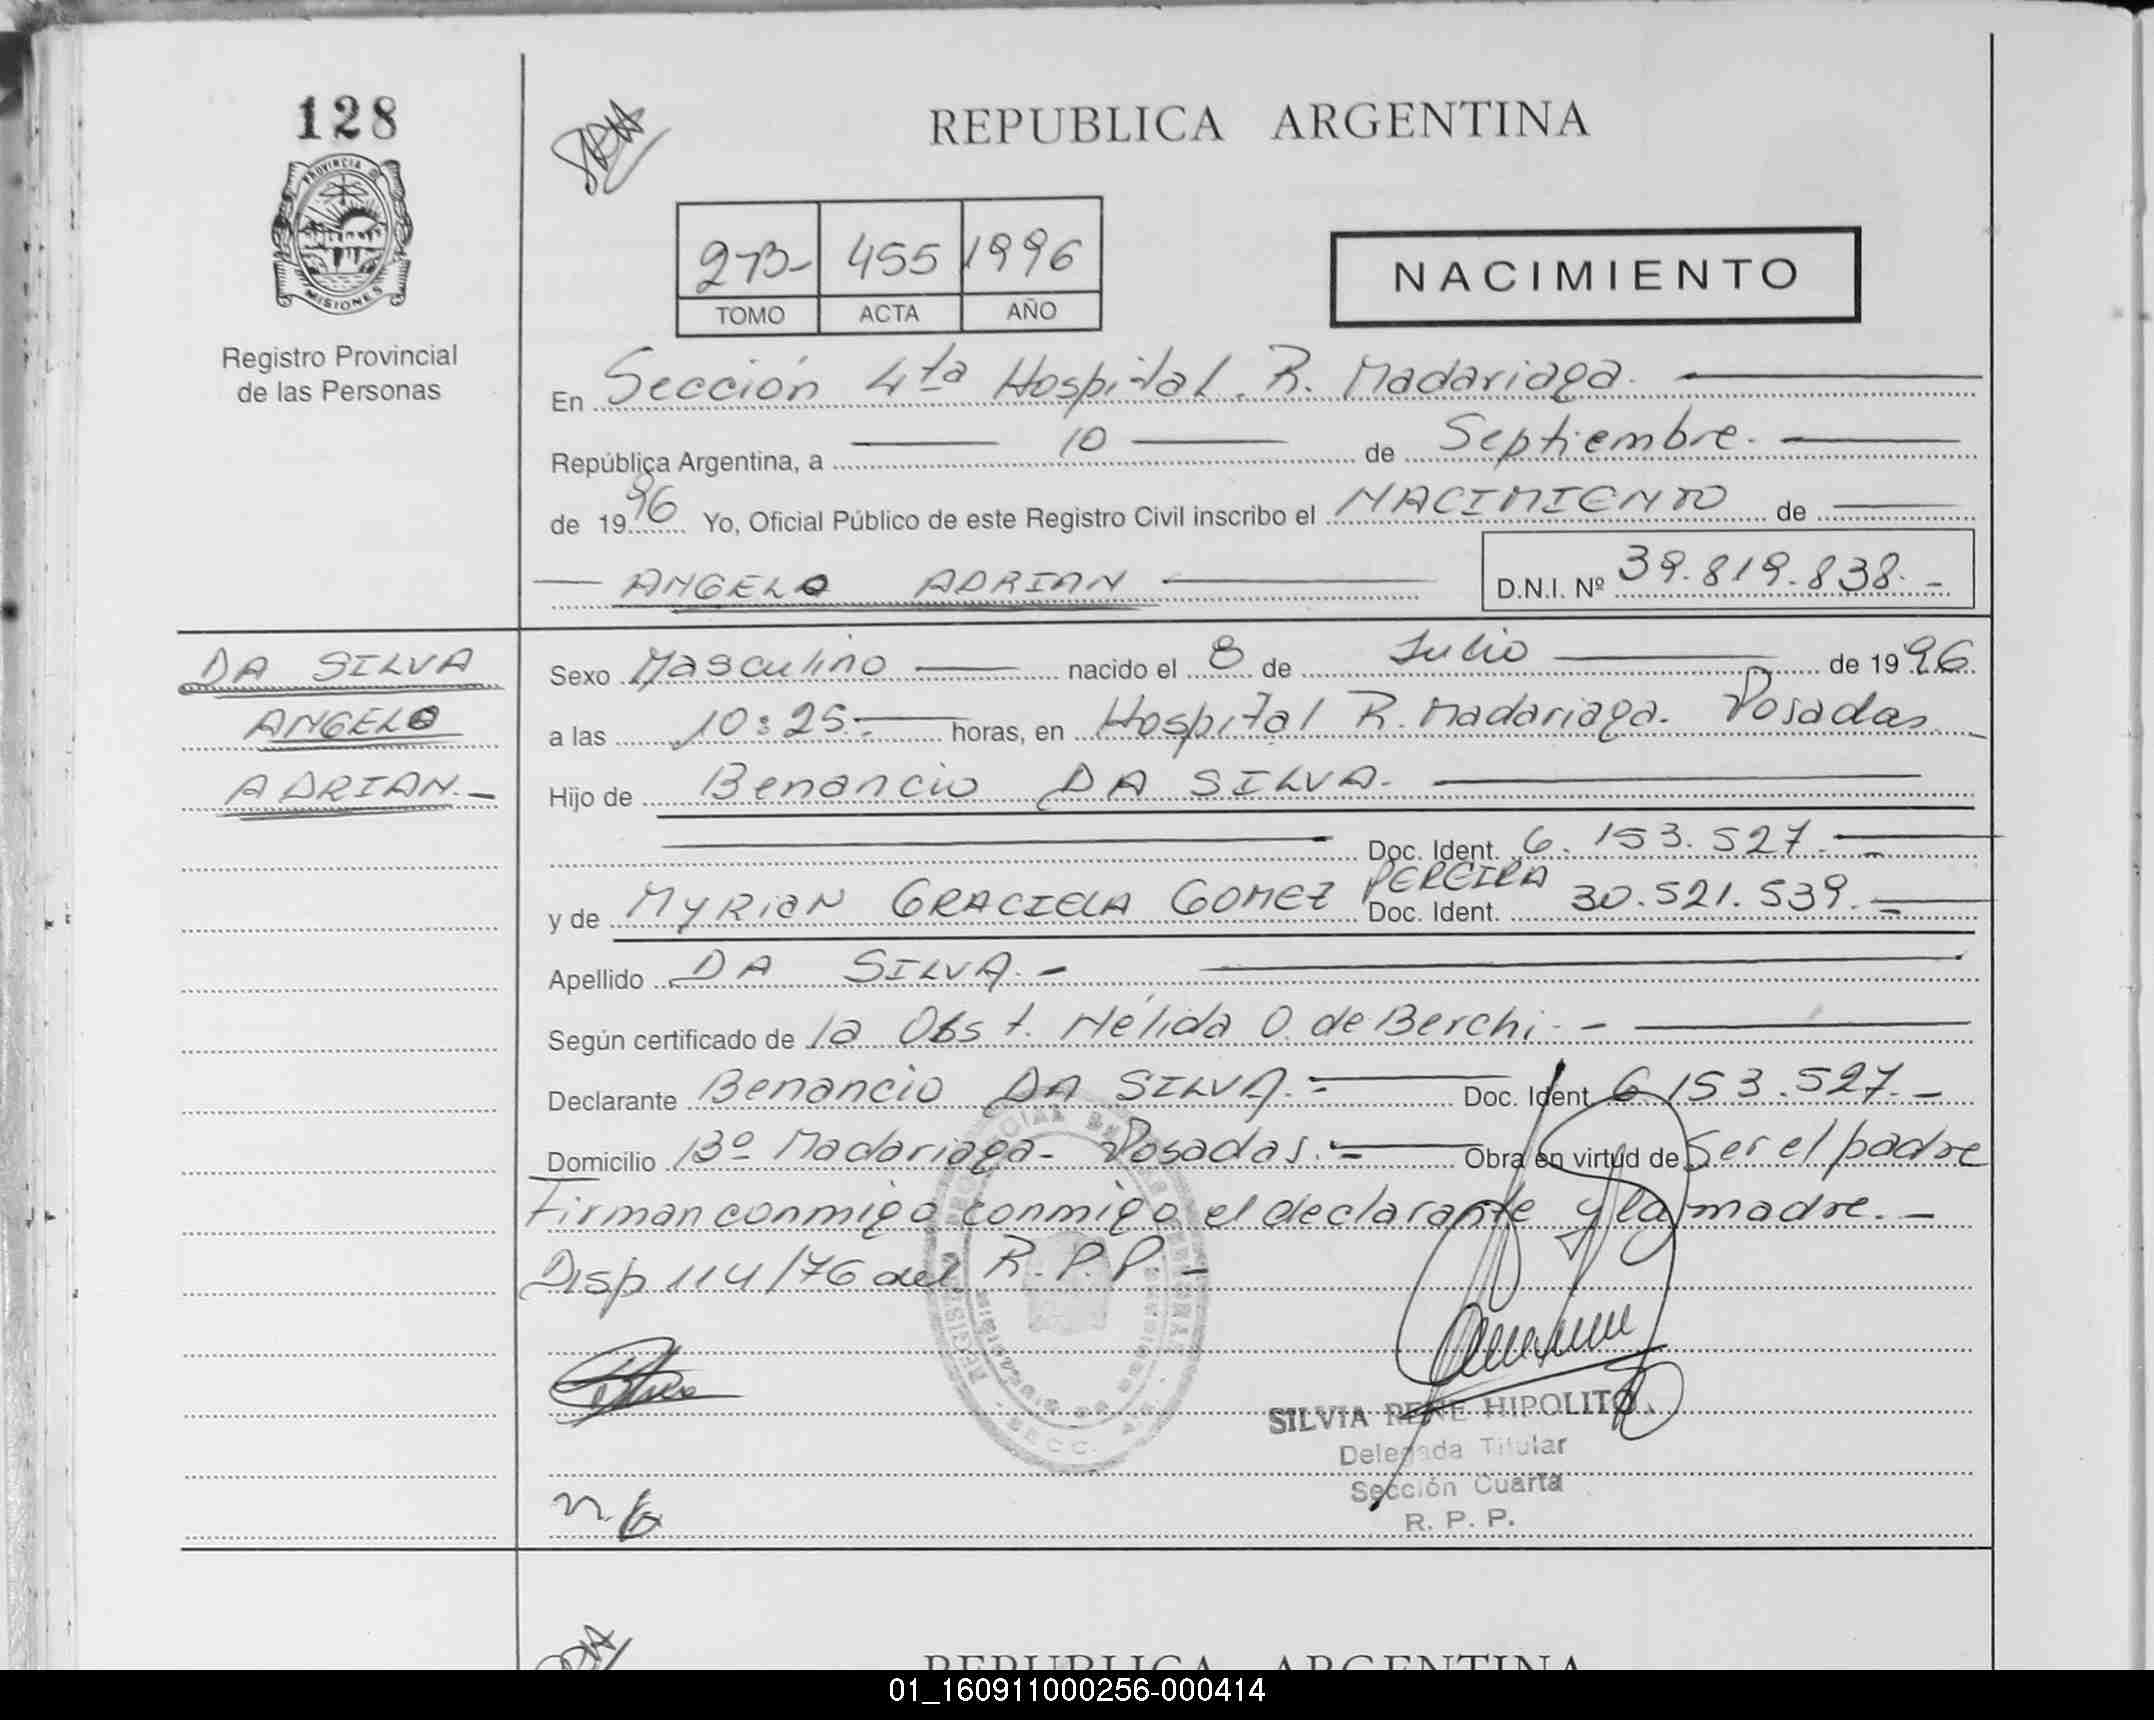 128
PROVINCIA D
MISIONES
Registro Provincial
de las Personas
REPUBLICA ARGENTINA
2-B- 455 1996
TOMO ACTA AÑO
NACIMIENTO
En Sección 4ta Hospital. R. Madariaga.
República Argentina, a 10 de Septiembre.
de 1996 Yo, Oficial Público de este Registro Civil inscribo el NACIMIENTO de
ANGELO ADRIAN D.N.I. Nº 39.819.838.-
DA SILVA
ANGELO
ADRIAN.-
Sexo Masculino nacido el 8 de Julio de 1996
a las 10:25.- horas, en Hospital R. Madariaga. Posadas
Hijo de Benancio DA SILVA.
Doc. Ident. 6.153.527.-
y de MYRIAN GRACIELA GOMEZ PEREIRA Doc. Ident. 30.521.539.-
Apellido DA SILVA.-
Según certificado de la Obst. Nélida O. de Berchi.-
Declarante Benancio DA SILVA.- Doc. Ident. 6.153.527.-
Domicilio Bº Madariaga- Posadas.- Obra en virtud de Ser el padre
Firman conmigo conmigo el declarante y la madre.-
Disp 114/76 del R.P.P.-
SILVIA RENE HIPOLITO
Delegada Titular
Sección Cuarta
R. P. P.
n. G
REPUBLICA ARGENTINA
01_160911000256-000414